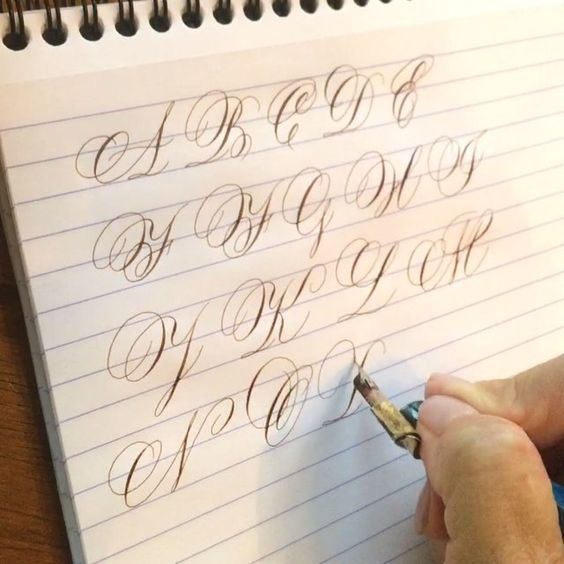 A B C D E
F F G H I
J K L M
N O